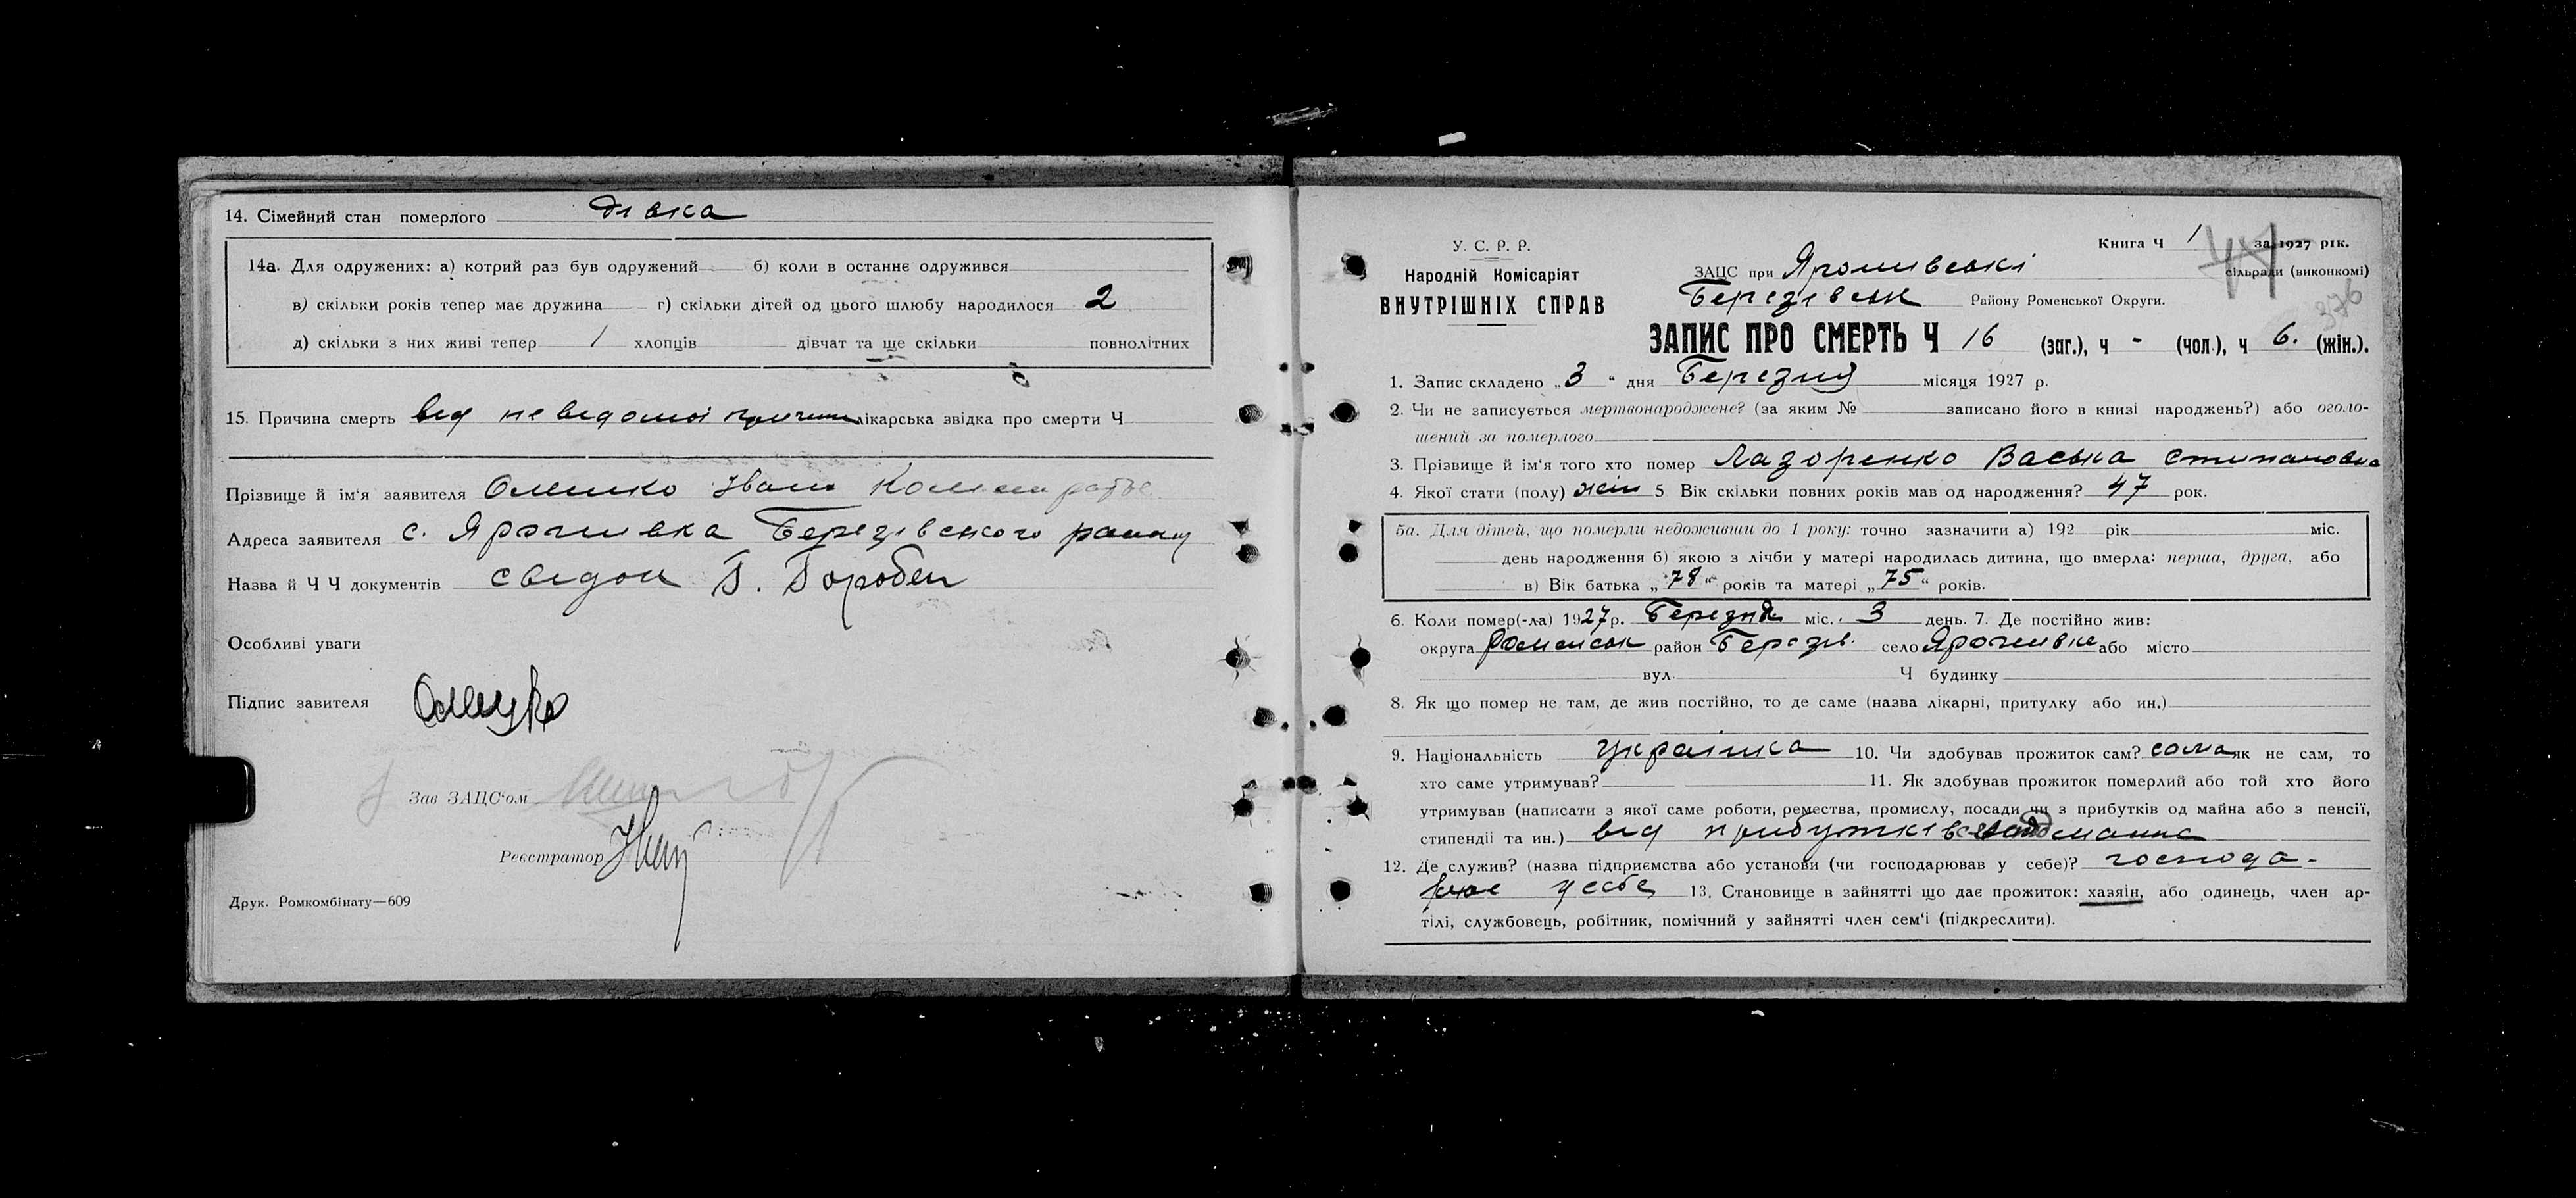 14. Сімейний стан померлого дівка
14а. Для одружених: а) котрий раз був одружений б) коли в останнє одружився
в) скільки років тепер має дружина г) скільки дітей од цього шлюбу народилося 2
д) скільки з них живі тепер 1 хлопців дівчат та ще скільки повнолітних
15. Причина смерть від невідомої причини лікарська звідка про смерти Ч
Прізвище й ім'я заявителя Іван
Адреса заявителя с. Ярошивка Березівского району
Назва й Ч Ч документів свідок
Особливі уваги
Підпис завителя
Зав ЗАЦС'ом
Реєстратор
Друк. Ромкомбінату—609
Книга Ч 1 за 1927 рік.
У. С. Р. Р.
Народній Комісаріят
ВНУТРІШНІХ СПРАВ
ЗАЦС при Ярошивські сільради (виконкомі)
Березівськ Району Роменської Округи.
376
ЗАПИС ПРО СМЕРТЬ Ч 16 (заг.), ч - (чол.), ч 6. (жін.).
1. Запис складено „3" дня Березня місяця 1927 р.
2. Чи не записується мертвонароджене? (за яким № записано його в книзі народжень?) або оголо-
шений за померлого
3. Прізвище й ім'я того хто помер Лазоренко Васька Стипановна
4. Якої стати (полу) жін 5. Вік скільки повних років мав од народження? 47 рок.
5а. Для дітей, що померли недоживши до 1 року: точно зазначити а) 192 рік міс.
день народження б) якою з лічби у матері народилась дитина, що вмерла: перша, друга, або
в) Вік батька „78" років та матері „75" років.
6. Коли помер(-ла) 1927 р. Березня міс. 3 день. 7. Де постійно жив:
округа Роменськ район Березів. село Ярошивка або місто
вул. Ч будинку
8. Як що помер не там, де жив постійно, то де саме (назва лікарні, притулку або ин.)
9. Національність українка 10. Чи здобував прожиток сам? сама як не сам, то
хто саме утримував? 11. Як здобував прожиток померлий або той хто його
утримував (написати з якої саме роботи, ремества, промислу, посади чи з прибутків од майна або з пенсії,
стипендії та ин.) від прибутків
12. Де служив? (назва підприємства або установи (чи господарював у себе)? господа-
рює у себе 13. Становище в зайнятті що дає прожиток: хазяін, або одинець, член ар-
тілі, службовець, робітник, помічний у зайнятті член сем'і (підкреслити).